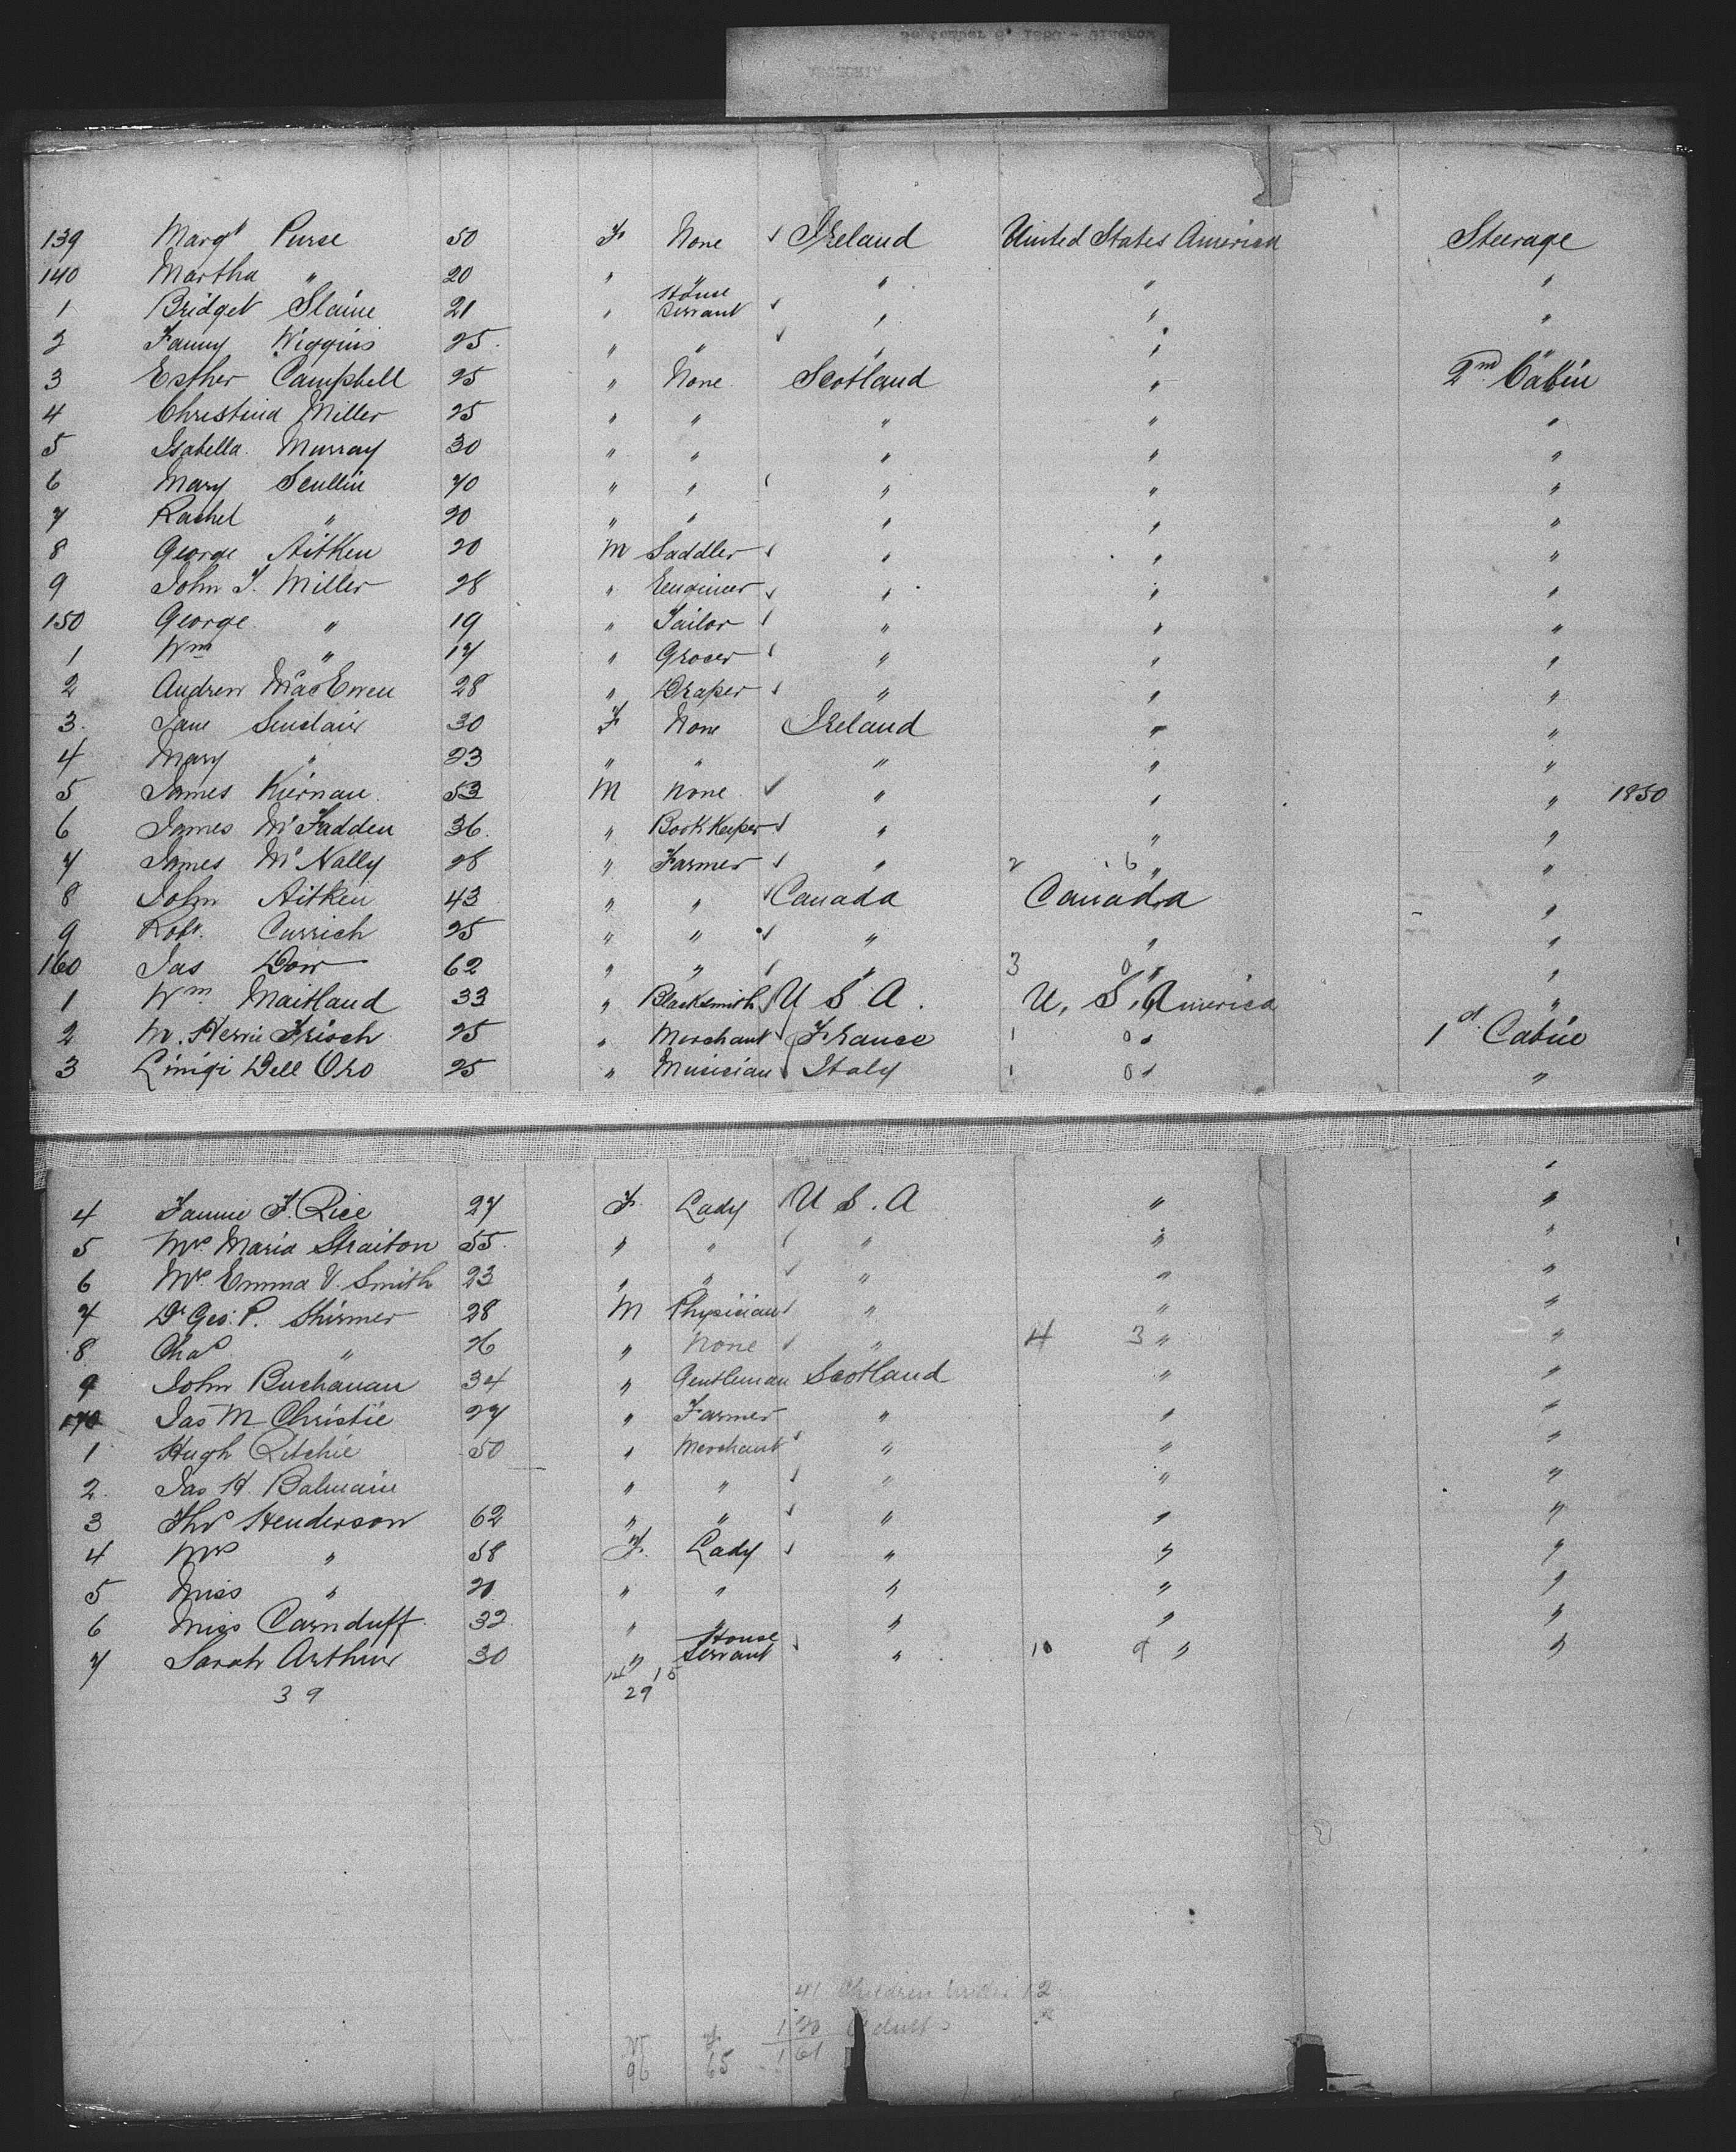 139 Margt Purse 50 F None Ireland United States America Steerage
140 Martha " 20 " " " " "
1 Bridget Slaine 21 " House Servant " " "
2 Fanny Wiggins 25 " " " " "
3 Esther Campbell 25 " None Scotland " 2nd Cabin
4 Christina Miller 25 " " " " "
5 Isabella Murray 30 " " " " "
6 Mary Scullin 40 " " " " "
7 Rachel " 20 " " " " "
8 George Aitken 20 M Saddler " " "
9 John T. Miller 28 " Engineer " " "
150 George " 19 " Tailor " " "
1 Wm " 17 " Grocer " " "
2 Andrew MacEwen 28 " Draper " " "
3 Jane Sinclair 30 F None Ireland " "
4 Mary " 23 " " " " "
5 James Kiernan 53 M None " " " 1850
6 James McFadden 36 " Bookkeeper " " "
7 James McNally 28 " Farmer " 2 6 " "
8 John Aitken 43 " " Canada Canada "
9 Robt. Currich 25 " " " " "
160 Jas Dow 62 " " " 3 0 " "
1 Wm Maitland 33 " Blacksmith U S A. U. S. America "
2 M. Henri Frisch 25 " Merchant France 1 0 " 1st Cabin
3 Linigi Dell Oro 25 " Musician Italy 1 0 " "
4 Fannie F. Rice 27 F Lady U S. A " "
5 Mrs Maria Straiton 55 " " " " "
6 Mrs Emma V. Smith 23 " " " " "
7 Dr Geo. P. Shirmer 28 M Physician " " "
8 Chas " 26 " None " 4 3 " "
9 John Buchanan 34 " Gentleman Scotland " "
170 Jas M Christie 27 " Farmer " " "
1 Hugh Ritchie 50 " Merchant " " "
2 Jas H. Balmain " " " " "
3 Thos Henderson 62 " " " " "
4 Mrs " 58 F. Lady " " "
5 Miss " 20 " " " " "
6 Miss Carnduff 32 " " " " "
7 Sarah Arthur 30 " House Servant " 10 9 " "
14 15
39 29
41 Children under 12
120 Adults
M F 161
96 65